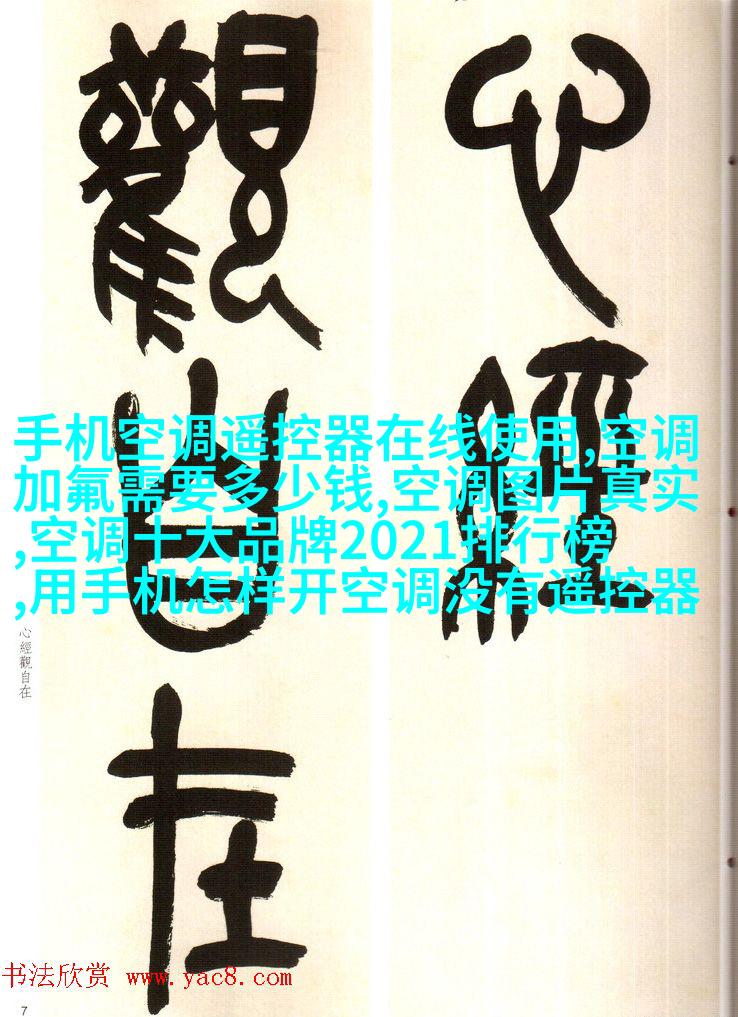 心經
觀自在
手机空调遥控器在线使用,空调
加氟需要多少钱,空调图片真实
,空调十大品牌2021排行榜
,用手机怎样开空调没有遥控器
心經觀自在
书法欣赏 www.yac8.com
7